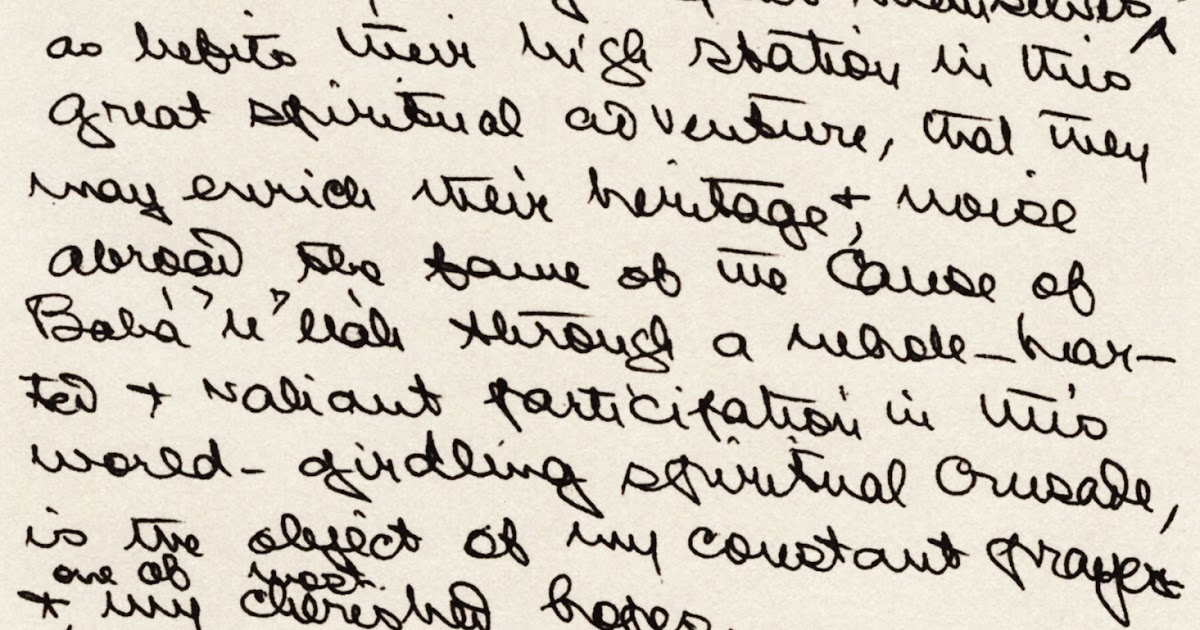 themselves,
as befits their high station in this
great spiritual adventure, that they
may enrich their heritage, + noise
abroad the fame of the Cause of
Bahá'u'lláh through a whole-hear-
ted + valiant participation in this
world-girdling spiritual Crusade,
is the object of my constant prayers
one of most
+ my cherished hopes.